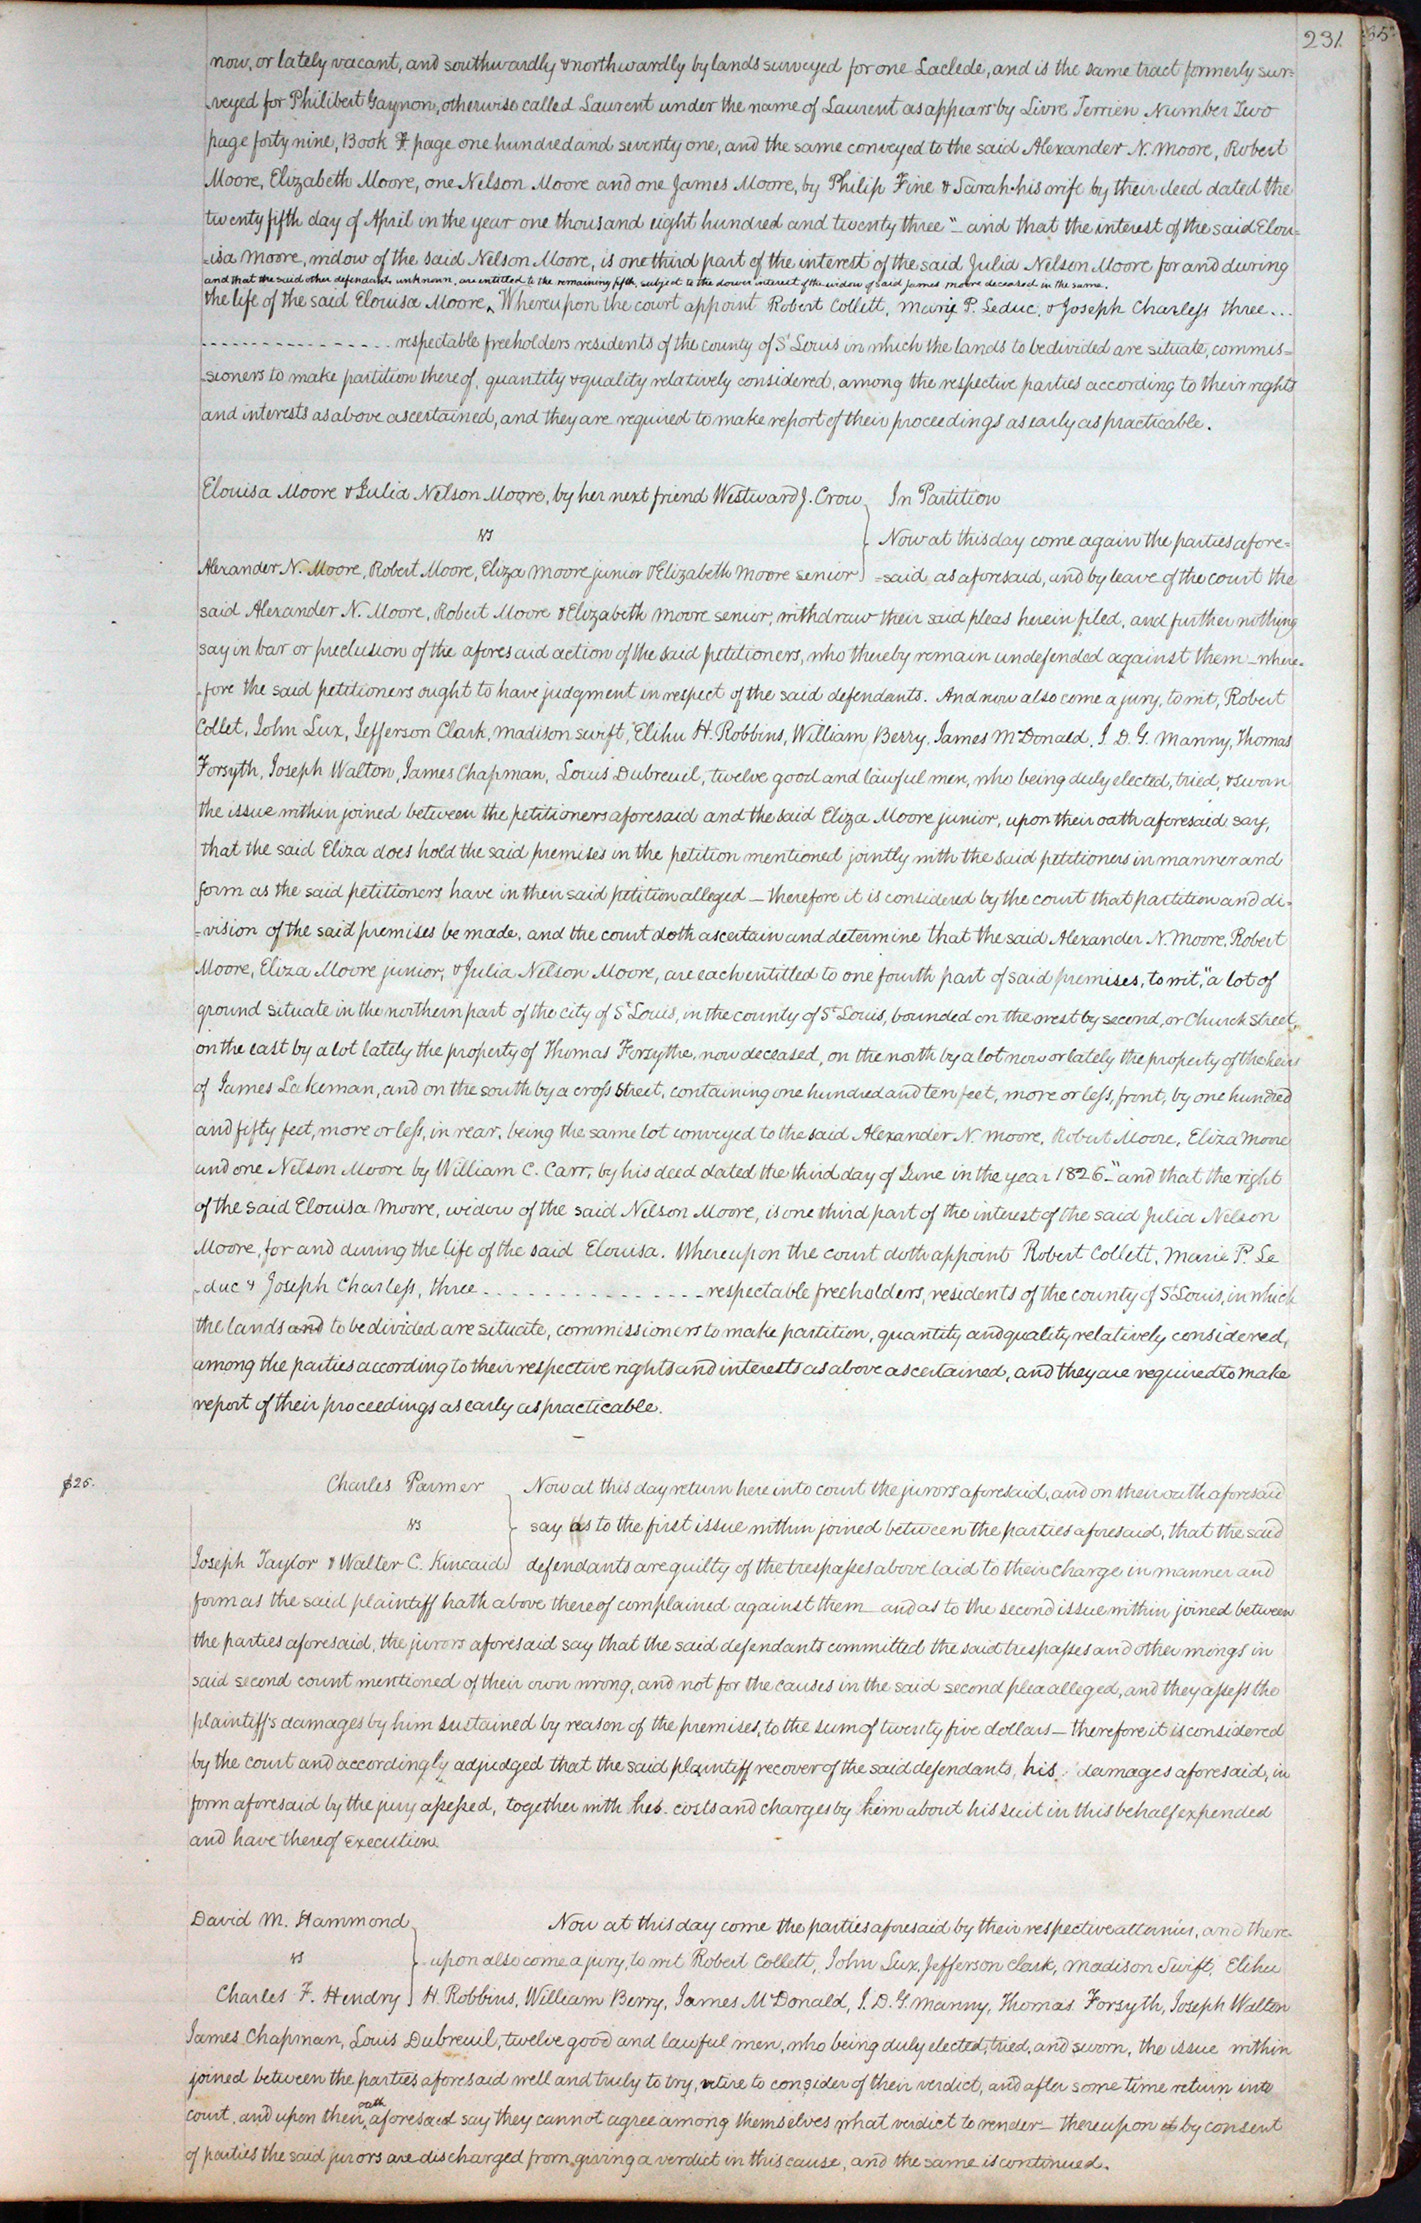 231.
35
now, or lately vacant, and southwardly & northwardly by lands surveyed for one Laclede, and is the same tract formerly sur=
veyed for Philibert Gaynon, otherwise called Laurent under the name of Laurent as appears by Livre Terrien Number Two
page forty nine, Book F. page one hundred and seventy one, and the same conveyed to the said Alexander N. Moore, Robert
Moore, Elizabeth Moore, one Nelson Moore and one James Moore, by Philip Fine & Sarah his wife by their deed dated the
twenty fifth day of April in the year one thousand eight hundred and twenty three" – and that the interest of the said Elou=
=isa Moore, widow of the said Nelson Moore, is one third part of the interest of the said Julia Nelson Moore for and during
and that the said other defendants unknown, are entitled to the remaining fifth, subject to the dower interest of the widow of said James Moore deceased in the same.
the life of the said Elouisa Moore, ^ Whereupon the court appoint Robert Collett, Marie P. Leduc, & Joseph Charless three...
................... respectable freeholders residents of the county of St Louis in which the lands to be divided are situate, commis=
sioners to make partition thereof, quantity & quality relatively considered, among the respective parties according to their rights
and interests as above ascertained, and they are required to make report of their proceedings as early as practicable.
Elouisa Moore & Julia Nelson Moore, by her next friend Westward J. Crow } In Partition
vs Now at this day come again the parties afore=
Alexander N. Moore, Robert Moore, Eliza Moore junior & Elizabeth Moore senior =said, as aforesaid, and by leave of the court the
said Alexander N. Moore, Robert Moore & Elizabeth Moore senior, withdraw their said pleas herein filed, and further nothing
say in bar or preclusion of the aforesaid action of the said petitioners, who thereby remain undefended against them – where=
fore the said petitioners ought to have judgment in respect of the said defendants. And now also come a jury, to wit, Robert
Collet, John Lux, Jefferson Clark, Madison Swift, Elihu H. Robbins, William Berry, James McDonald, J. D. G. Manny, Thomas
Forsyth, Joseph Walton, James Chapman, Louis Dubreuil, twelve good and lawful men, who being duly elected, tried, & sworn
the issue within joined between the petitioners aforesaid and the said Eliza Moore junior, upon their oath aforesaid say,
that the said Eliza does hold the said premises in the petition mentioned jointly with the said petitioners in manner and
form as the said petitioners have in their said petition alleged – therefore it is considered by the court that partition and di=
=vision of the said premises be made, and the court doth ascertain and determine that the said Alexander N. Moore, Robert
Moore, Eliza Moore junior, & Julia Nelson Moore, are each entitled to one fourth part of said premises, to wit, "a lot of
ground situate in the northern part of the city of St Louis, in the county of St Louis, bounded on the west by second, or Church street,
on the east by a lot lately the property of Thomas Forsythe, now deceased, on the north by a lot now or lately the property of the heirs
of James Lakeman, and on the south by a cross street, containing one hundred and ten feet, more or less, front, by one hundred
and fifty feet, more or less, in rear, being the same lot conveyed to the said Alexander N. Moore, Robert Moore, Eliza Moore
and one Nelson Moore by William C. Carr, by his deed dated the third day of June in the year 1826 –" and that the right
of the said Elouisa Moore, widow of the said Nelson Moore, is one third part of the interest of the said Julia Nelson
Moore, for and during the life of the said Elouisa. Whereupon the court doth appoint Robert Collett, Marie P. Le
duc & Joseph Charless, three ................ respectable freeholders, residents of the county of St Louis, in which
the lands and to be divided are situate, commissioners to make partition, quantity and quality relatively considered,
among the parties according to their respective rights and interests as above ascertained, and they are required to make
report of their proceedings as early as practicable.
$25. Charles Parmer } Now at this day return here into court the jurors aforesaid, and on their oath aforesaid
vs say as to the first issue within joined between the parties aforesaid, that the said
Joseph Taylor & Walter C. Kincaid defendants are guilty of the trespasses above laid to their charge in manner and
form as the said plaintiff hath above thereof complained against them – and as to the second issue within joined between
the parties aforesaid, the jurors aforesaid say that the said defendants committed the said trespasses and other wrongs in
said second count mentioned of their own wrong, and not for the causes in the said second plea alleged, and they assess the
plaintiff's damages by him sustained by reason of the premises, to the sum of twenty five dollars – therefore it is considered
by the court and accordingly adjudged that the said plaintiff recover of the said defendants, his damages aforesaid, in
form aforesaid by the jury assessed, together with his costs and charges by him about his suit in this behalf expended
and have thereof Execution.
David M. Hammond } Now at this day come the parties aforesaid by their respective attornies, and there=
vs upon also come a jury, to wit Robert Collett, John Lux, Jefferson Clark, Madison Swift, Elihu
Charles F. Hendry H. Robbins, William Berry, James McDonald, J. D. G. Manny, Thomas Forsyth, Joseph Walton
James Chapman, Louis Dubreuil, twelve good and lawful men, who being duly elected, tried, and sworn, the issue within
joined between the parties aforesaid well and truly to try, retire to consider of their verdict, and after some time return into
court, and upon their ^oath aforesaid say they cannot agree among themselves what verdict to render – thereupon it by consent
of parties the said jurors are discharged from giving a verdict in this cause, and the same is continued.